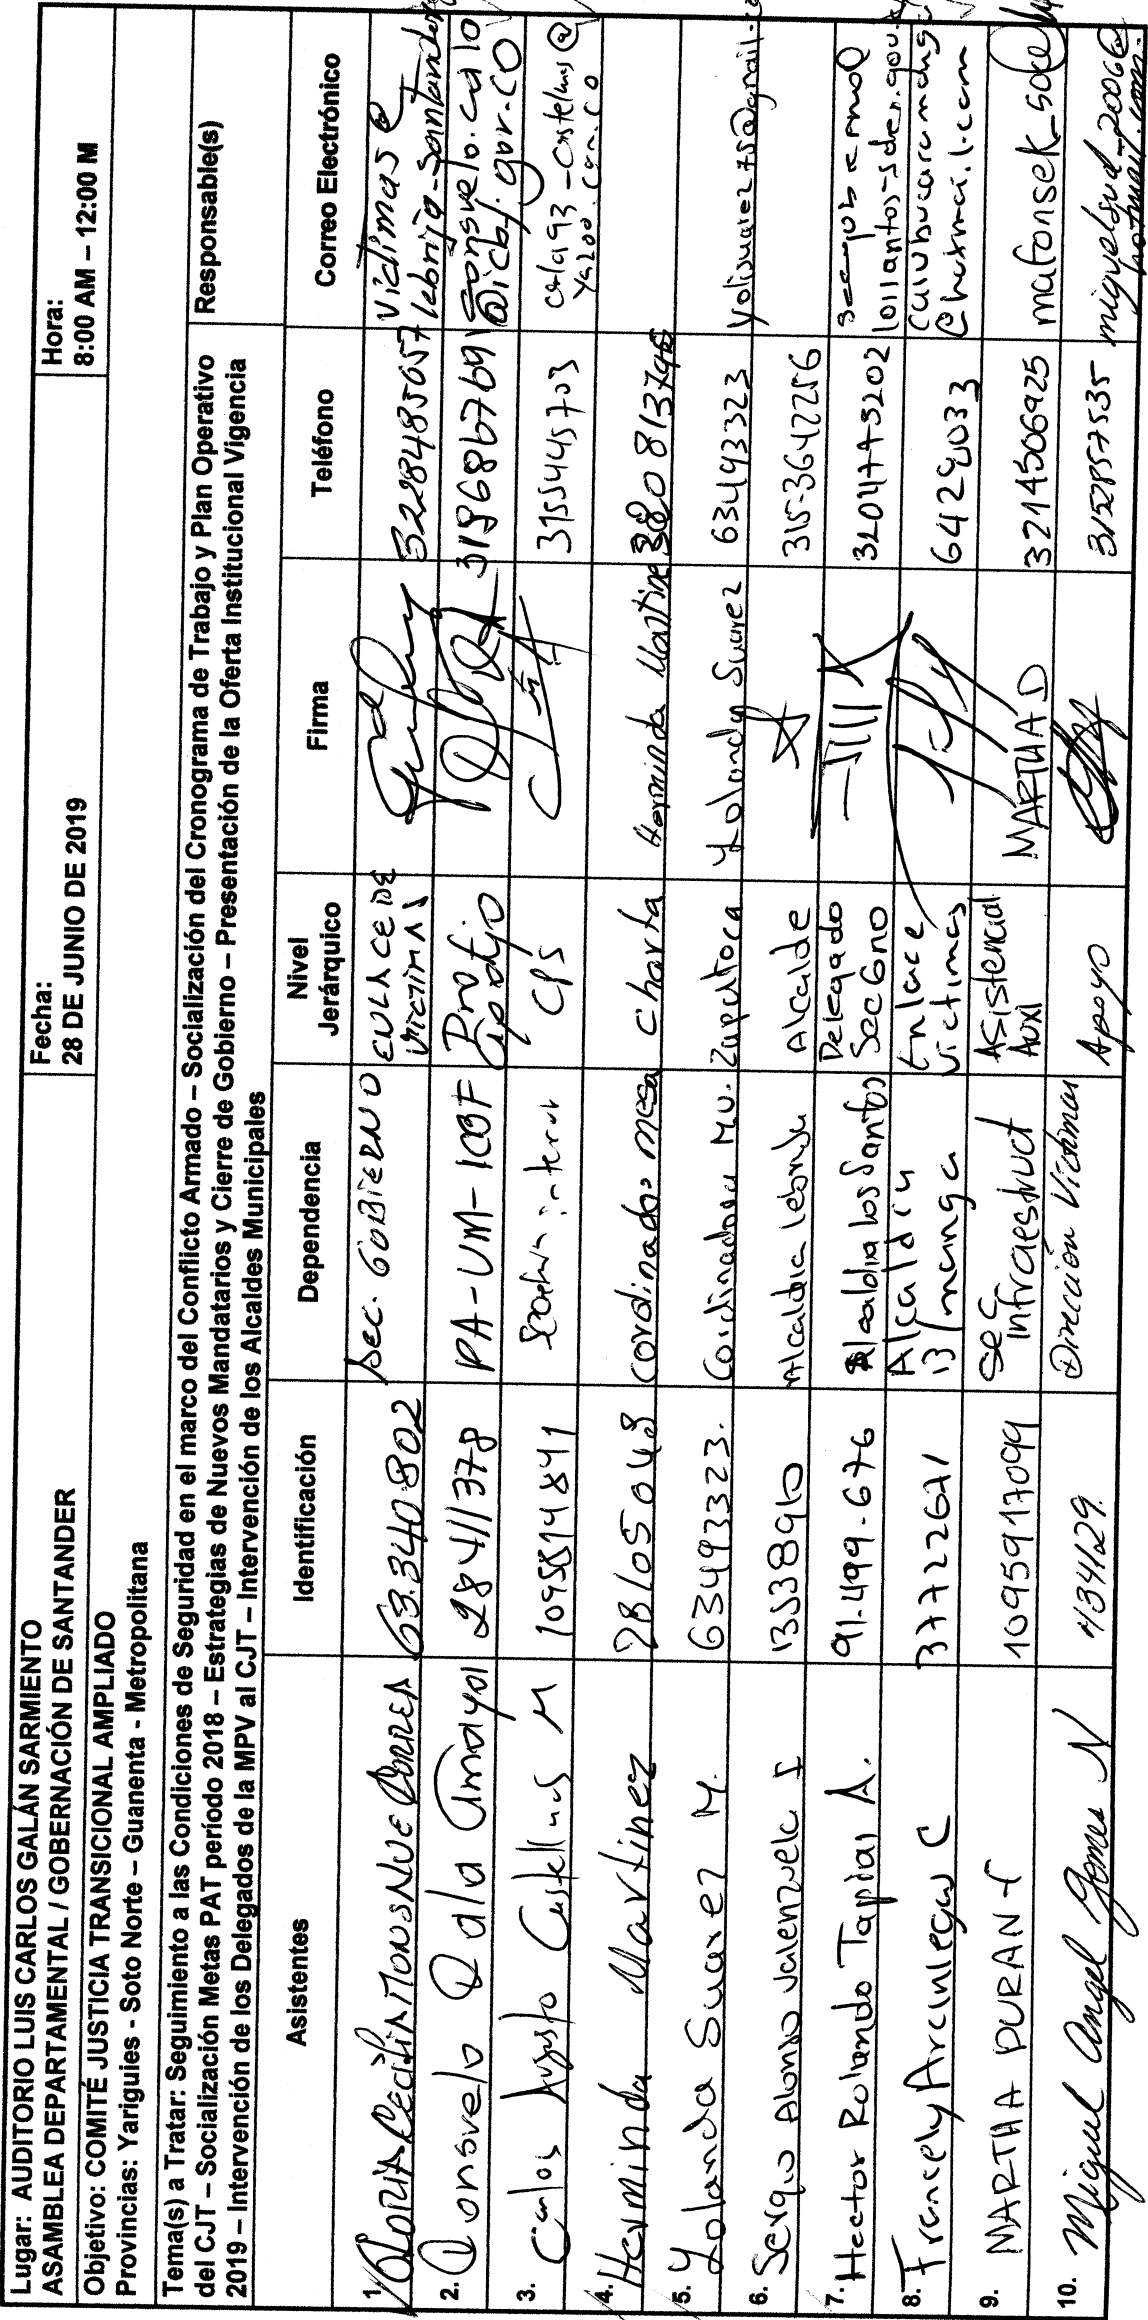 Lugar: AUDITORIO LUIS CARLOS GALÁN SARMIENTO
ASAMBLEA DEPARTAMENTAL / GOBERNACIÓN DE SANTANDER
Fecha:
28 DE JUNIO DE 2019
Hora:
8:00 AM – 12:00 M
Objetivo: COMITÉ JUSTICIA TRANSICIONAL AMPLIADO
Provincias: Yariguies - Soto Norte – Guanenta - Metropolitana
Tema(s) a Tratar: Seguimiento a las Condiciones de Seguridad en el marco del Conflicto Armado – Socialización del Cronograma de Trabajo y Plan Operativo
del CJT – Socialización Metas PAT período 2018 – Estrategias de Nuevos Mandatarios y Cierre de Gobierno – Presentación de la Oferta Institucional Vigencia
2019 – Intervención de los Delegados de la MPV al CJT – Intervención de los Alcaldes Municipales
Responsable(s)
Asistentes Identificación Dependencia Nivel Jerárquico Firma Teléfono Correo Electrónico
1. GLORIA CECILIA MONSALVE CORREA 63.340802 Sec. GOBIERNO ENLACE DE VICTIMAS 3228485057 victimas@ lebrija-santander
2. Consuelo Rala Amaya 28411378 PA-UM-ICBF Prof 3186867691 consuelo.cala @icbf.gov.co
3. Carlos Augusto Castellanos M 1095814841 CPS 3155445703 cala93-castellanos@ yahoo.com.co
4. Herminda Martinez 28105048 cordinado mesa Charta Herminda Martinez 3208137946
5. Yolanda Suarez M. 63493323. Cordinadora Mu. Zapatoca Yolanda Suarez 63493323 yolisuarez75@gmail.co
6. Sergio Alonso Valenzuela F 1353896 Alcaldia lebrija Alcalde 315-3642256
7. Hector Rolando Tapias A. 91.499.676 Alcaldia los Santos Delegado Sec Gno 3204745202
8. Francely Arciniegas C 37722671 Alcaldia B/manga Enlace victimas 6424033 @hotmail.com
9. MARTHA DURAN F 1095917099 Sec Infraestruct Asistencial Auxi MARTHA D 3214506925 mafonsek_50@
10. Miguel Angel Gomez N 4341129. Dirección Victimas Apoyo 3152857535 miguelsud_2006@ hotmail.com.